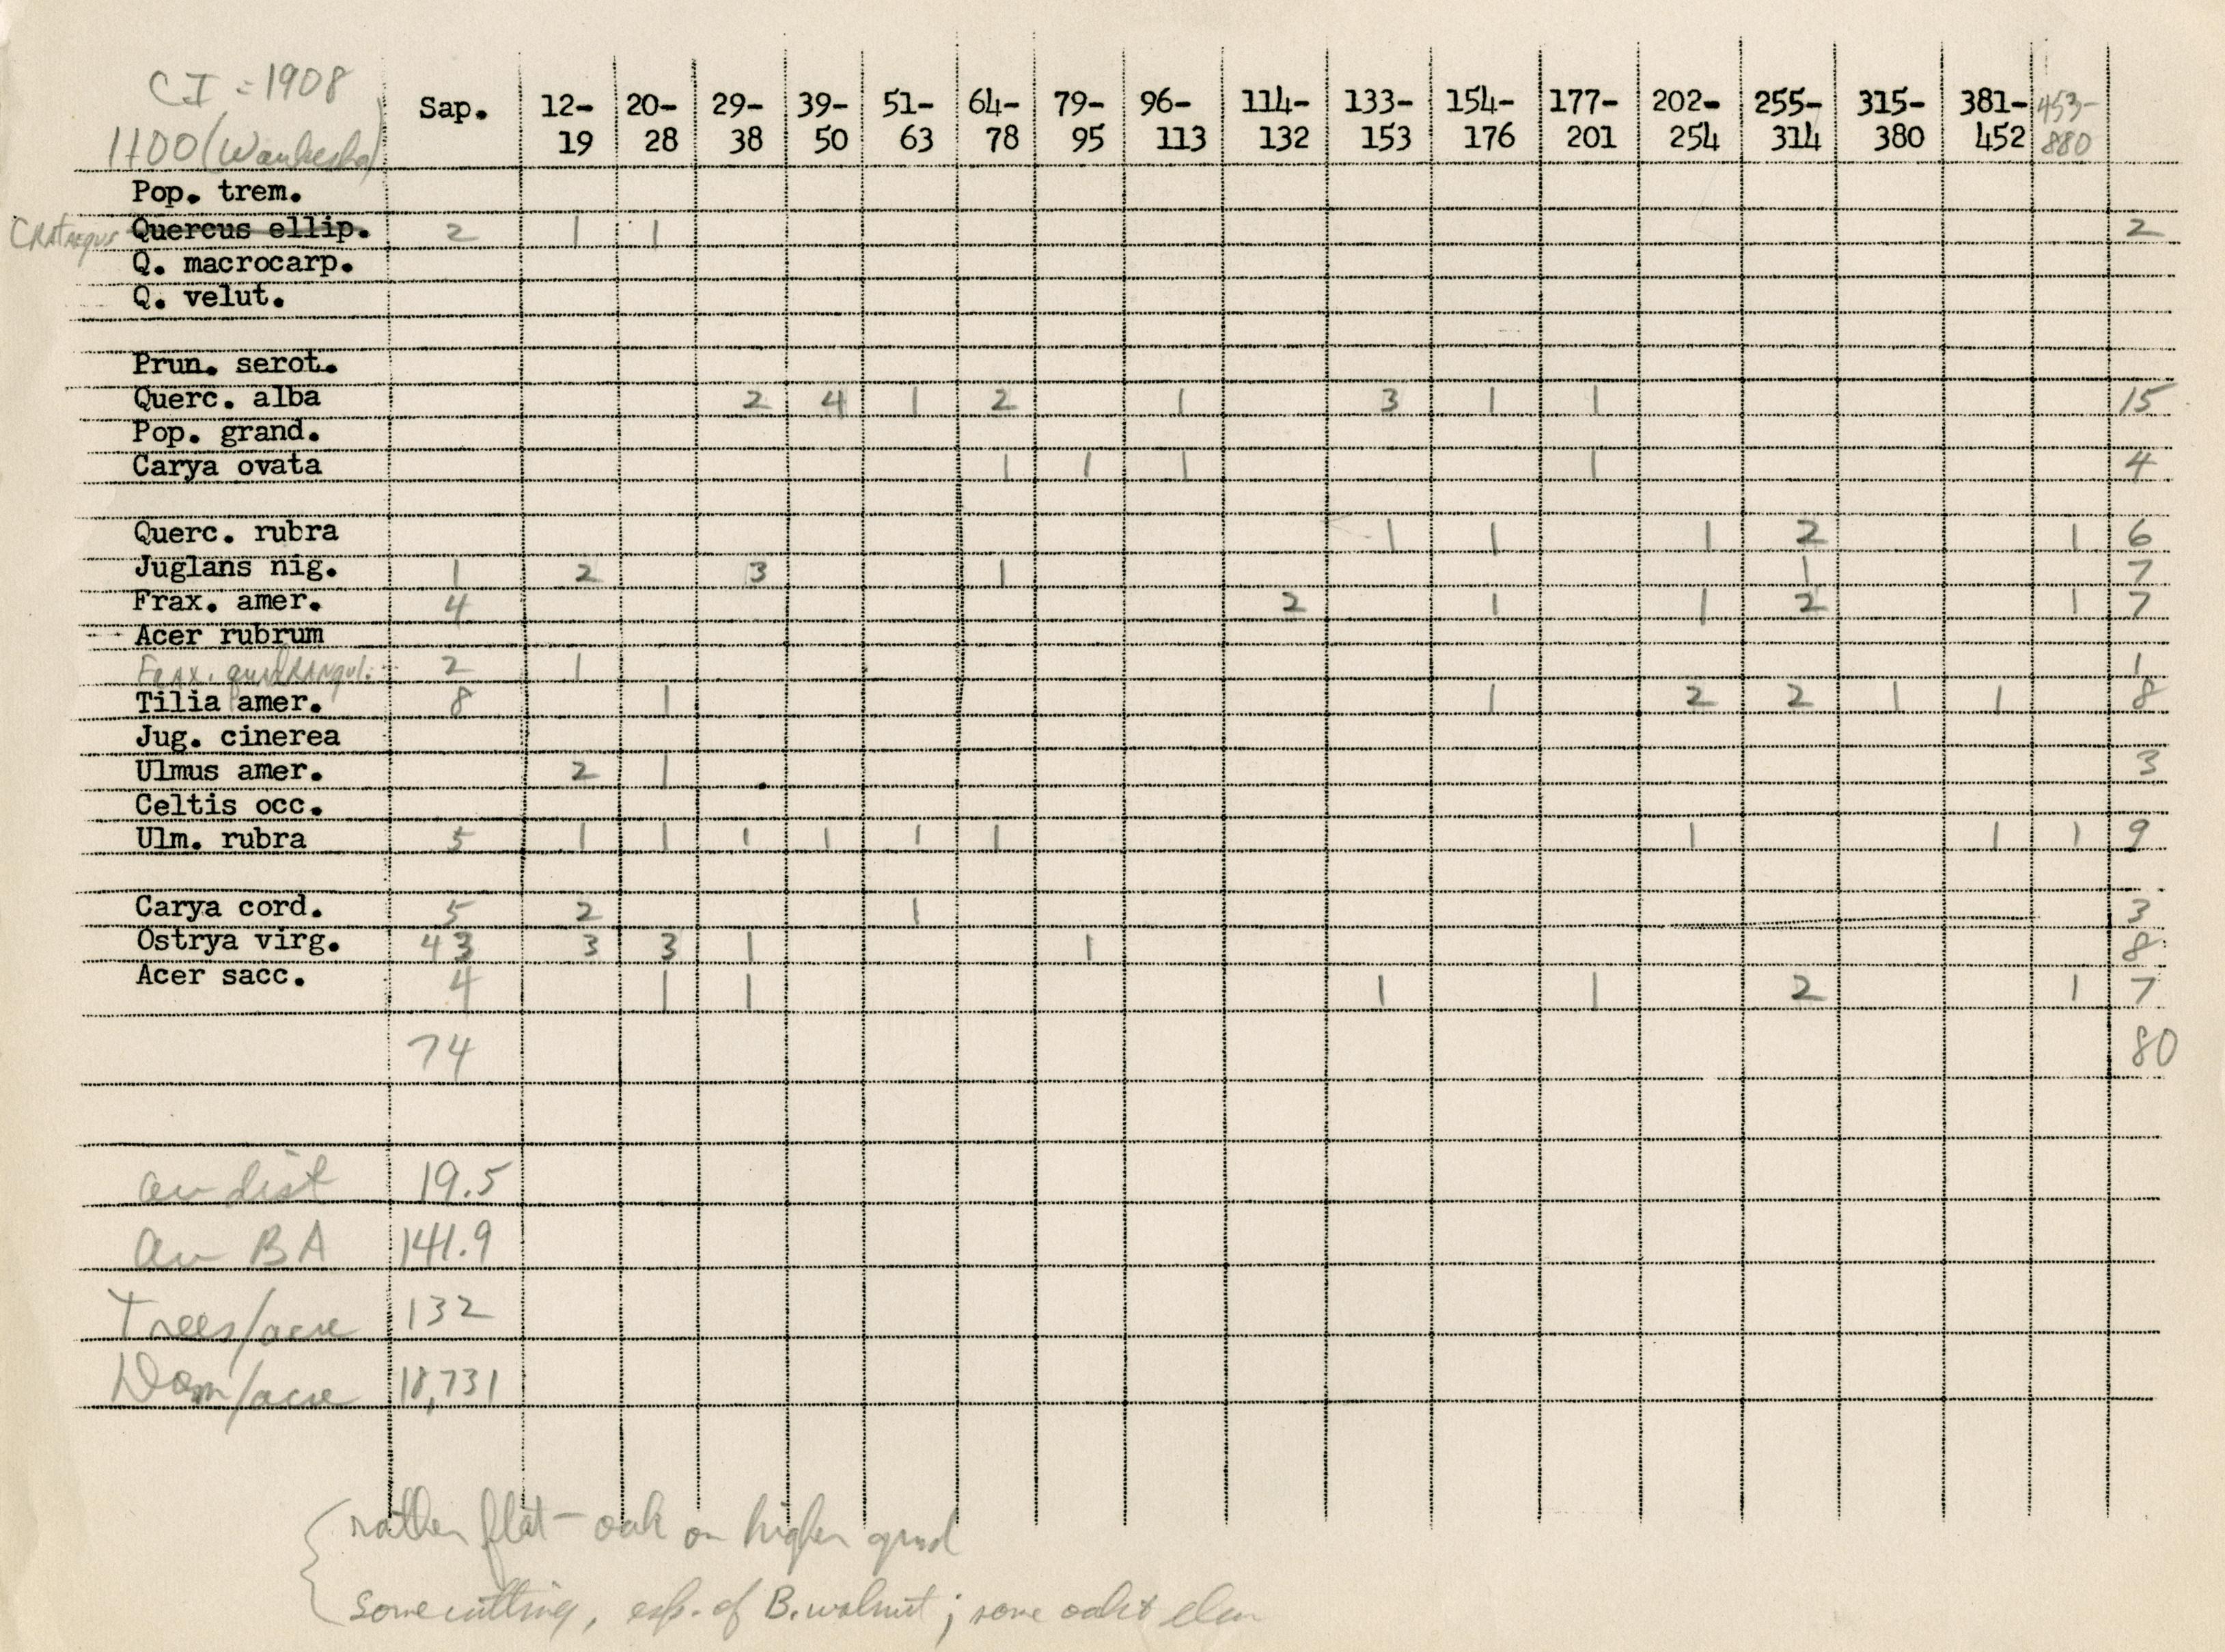 CI = 1908
Sap. 12- 20- 29- 39- 51- 64- 79- 96- 114- 133- 154- 177- 202- 255- 315- 381- 453-
1100 (Waukesha) 19 28 38 50 63 78 95 113 132 153 176 201 254 314 380 452 880
Pop. trem.
CRATAEGUS Quercus ellip. 2 1 1 2
Q. macrocarp.
Q. velut.
Prun. serot.
Querc. alba 2 4 1 2 1 3 1 1 15
Pop. grand.
Carya ovata 1 1 1 1 4
Querc. rubra 1 1 1 2 1 6
Juglans nig. 1 2 3 1 1 7
Frax. amer. 4 2 1 1 2 1 7
Acer rubrum
FRAX. quadRANgul. 2 1 1
Tilia amer. 8 1 1 2 2 1 1 8
Jug. cinerea
Ulmus amer. 2 1 3
Celtis occ.
Ulm. rubra 5 1 1 1 1 1 1 1 1 1 9
Carya cord. 5 2 1 3
Ostrya virg. 43 3 3 1 1 8
Acer sacc. 4 1 1 1 1 2 1 7
74 80
av dist 19.5
Av BA 141.9
Trees/acre 132
Dom/acre 18,731
rather flat - oak on higher grnd
some cutting, esp. of B. walnut; some oak & elm